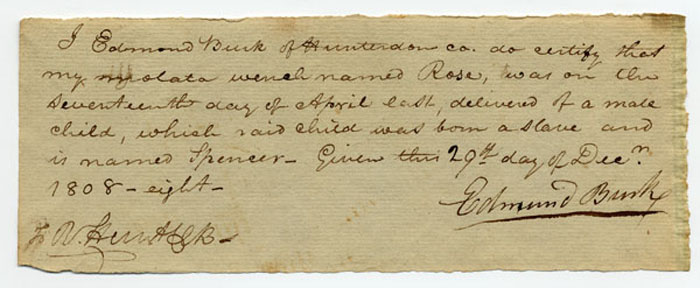 I Edmond Burk of Hunterdon co. do certify that
my molata wench named Rose, was on the
seventeenth day of April last, delivered of a male
child, which said child was born a slave and
is named Spencer – Given this 29th day of Decn.
1808 – eight –
Edmund Burk